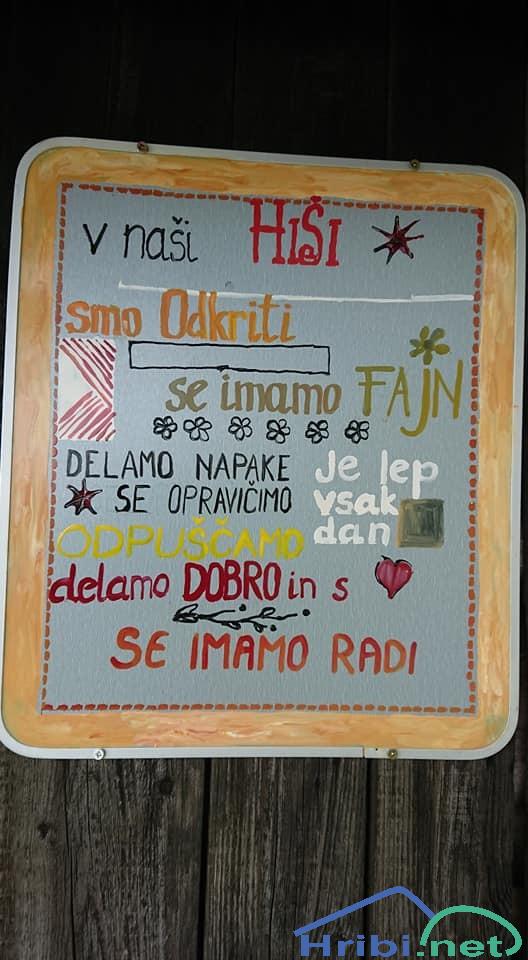 v naši HiŠi
smo Odkriti
se imamo FAJN
DELAMO NAPAKE
SE OPRAVIČIMO
je lep
vsak
dan
ODPUŠČAMO
delamo DOBRO in s
SE IMAMO RADI
Hribi.net